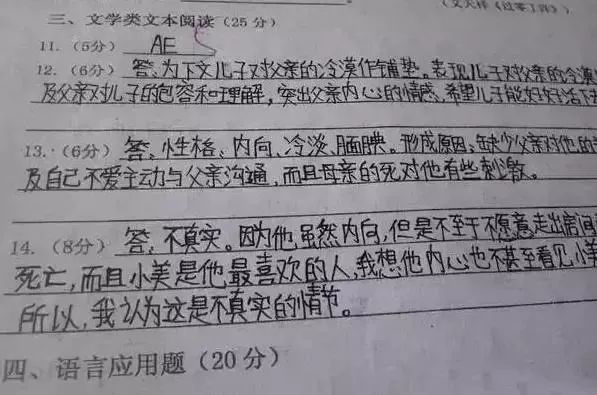 (文天祥《过零丁洋》)
三、文学类文本阅读(25分)
11.(5分) AE
12.(6分) 答:为下文儿子对父亲的冷漠作铺垫。表现儿子对父亲的冷漠
及父亲对儿子的包容和理解,突出父亲内心的情感,希望儿子能好好活下去
13.(6分) 答:性格:内向、冷淡、腼腆。形成原因:缺少父亲对他的
及自己不爱主动与父亲沟通,而且母亲的死对他有些刺激。
14.(8分) 答:不真实。因为他虽然内向,但是不至于不愿意走出房间
死亡,而且小美是他最喜欢的人,我想他内心也不甚至看见小美
所以,我认为这是不真实的情节。
四、语言应用题(20分)